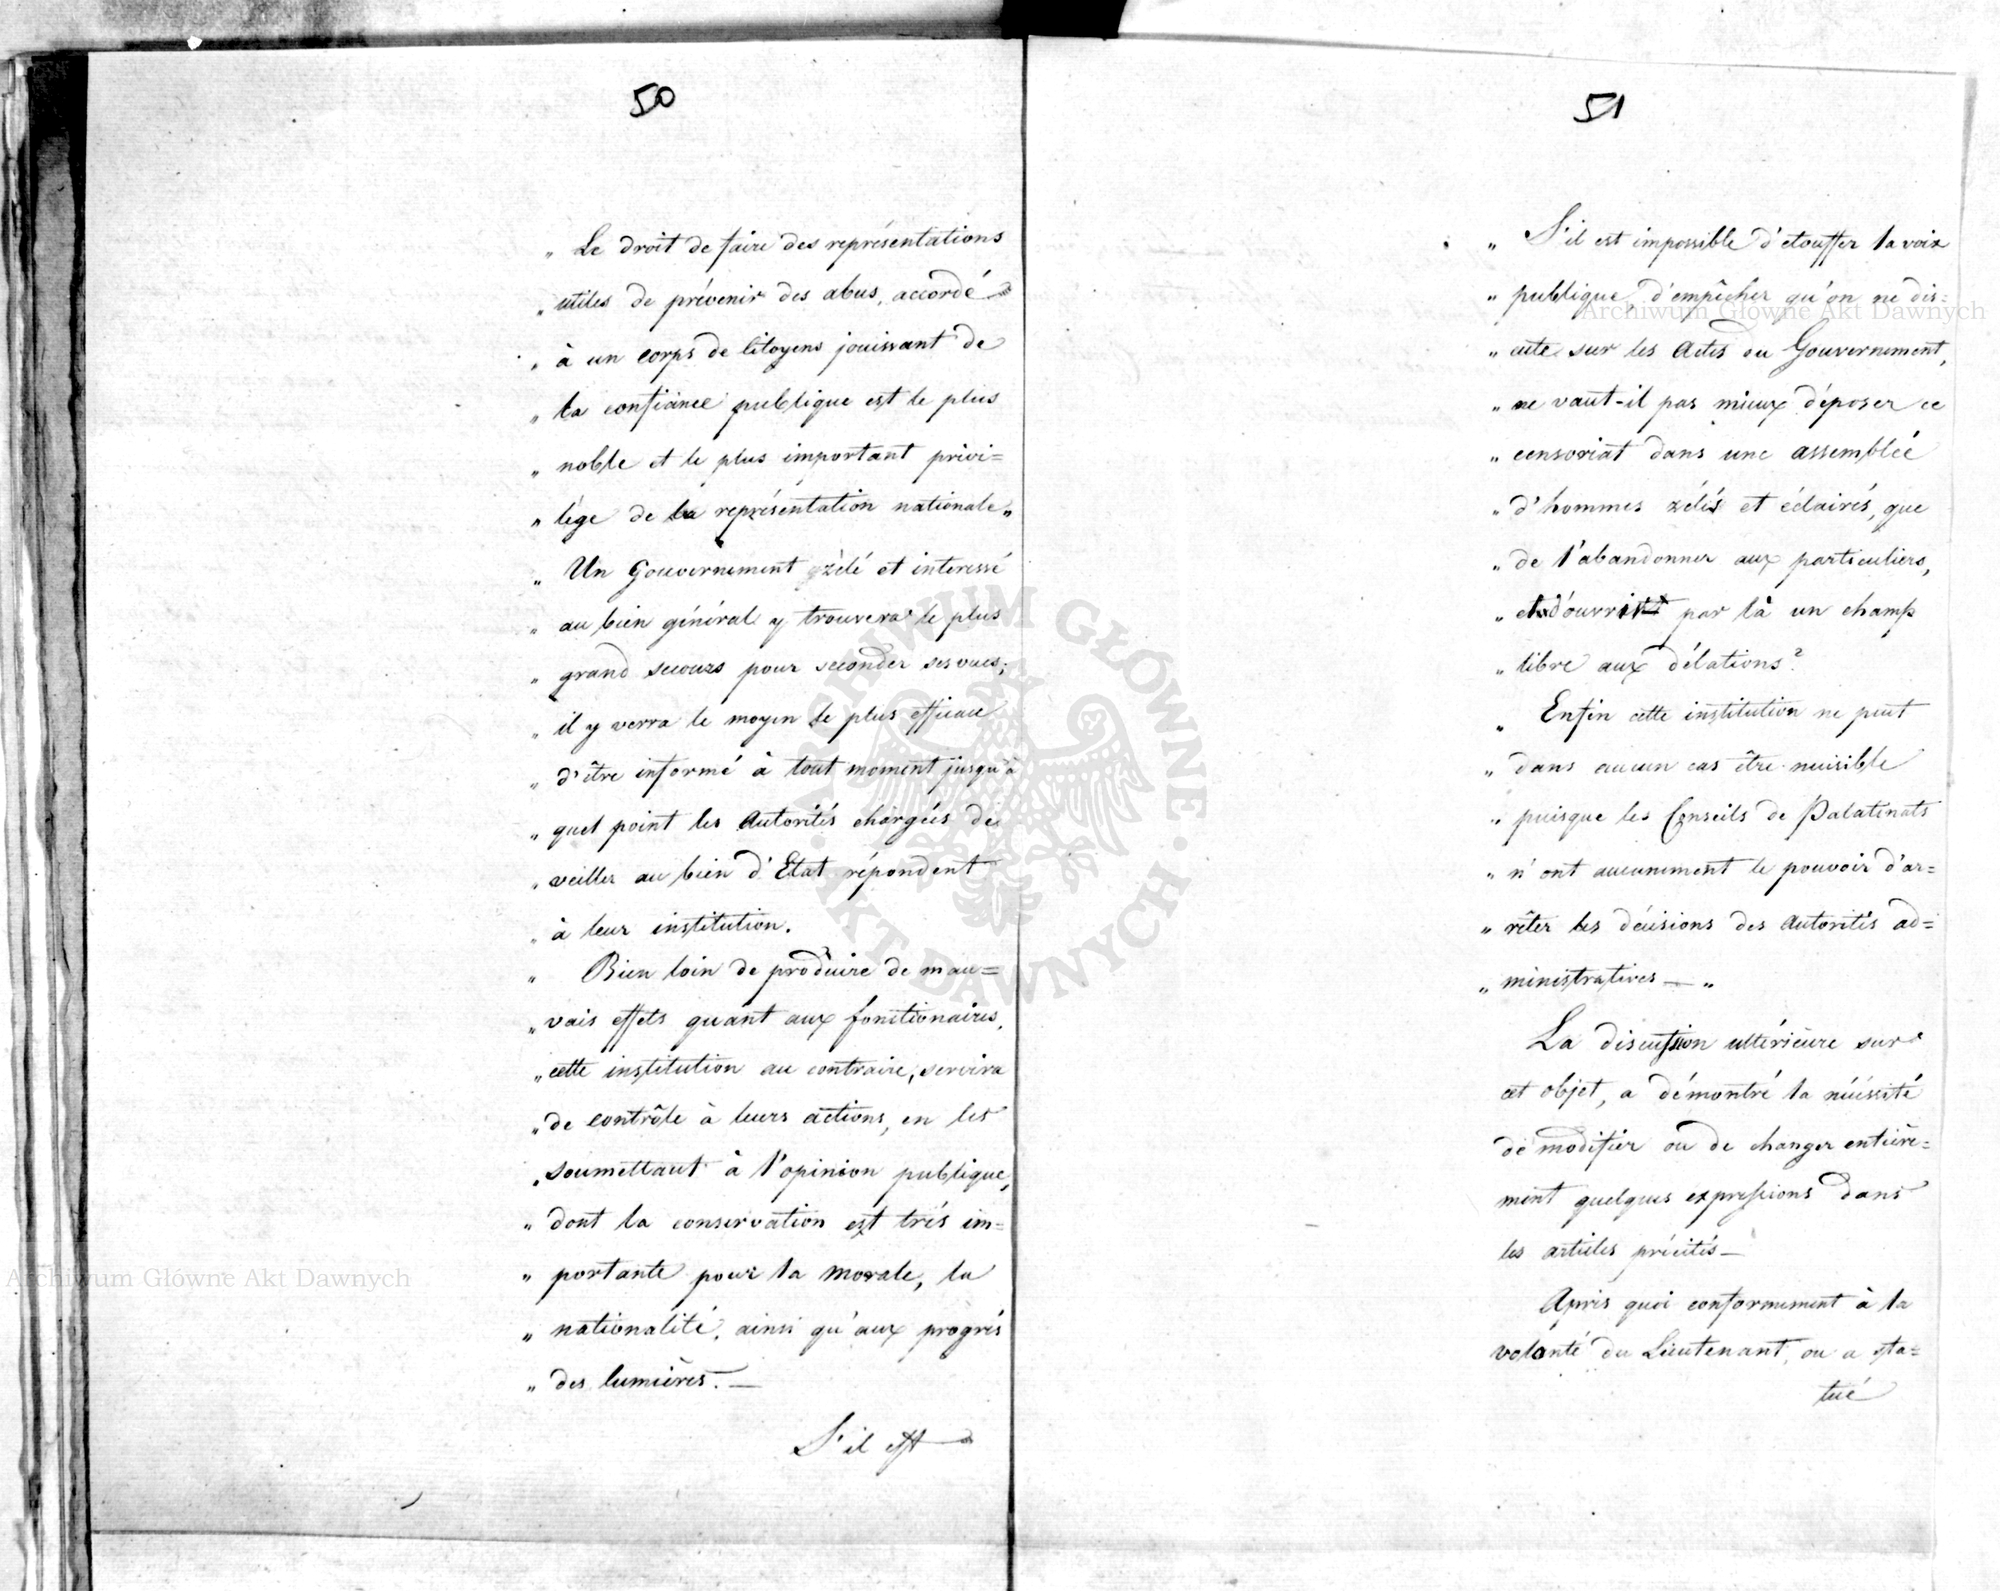 50
„ Le droit de faire des représentations
„ utiles de prévenir des abus, accordé
„ à un corps de Citoyens jouissant de
„ la confiance publique est le plus
„ noble et le plus important privi=
„ lège de la représentation nationale„
„ Un Gouvernement zèlé et interessé
„ au bien général y trouvera le plus
„ grand secours pour seconder ses vues;
„ il y verra le moyen le plus efficace
„ d'être informé à tout moment jusqu'à
„ quel point les Autorités chargées de
„ veiller au bien d'Etat répondent
„ à leur institution.
„ Bien loin de produire de mau=
„ vais effets quant aux fonctionaires,
„ cette institution au contraire, servira
„ de contrôle à leurs actions, en les
„ soumettant à l'opinion publique,
„ dont la conservation est très im=
„ portante pour la morale, la
„ nationalité, ainsi qu'aux progrès
„ des lumières. —
S'il est
51
„ S'il est impossible d'etouffer la voix
„ publique, d'empêcher qu'on ne dis=
„ cute sur les Actes du Gouvernement,
„ ne vaut-il pas mieux déposer ce
„ censoriat dans une assemblée
„ d'hommes zélés et éclairés, que
„ de l'abandonner aux particuliers,
„ et d'ouvrir par là un champ
„ libre aux délations?
„ Enfin cette institution ne peut
„ dans aucun cas être nuisible
„ puisque les Conseils de Palatinats
„ n'ont aucunement le pouvoir d'ar=
„ rêter les décisions des Autorités ad=
„ ministratives — „
La discussion ultérieure sur
cet objet, a démontré la nécessité
de modifier ou de changer entière=
ment quelques expressions dans
les articles précités —
Après quoi conformement à la
volonté du Lieutenant, on a sta=
tué
Archiwum Główne Akt Dawnych
Archiwum Główne Akt Dawnych
ARCHIWUM GŁÓWNE · AKT DAWNYCH ·